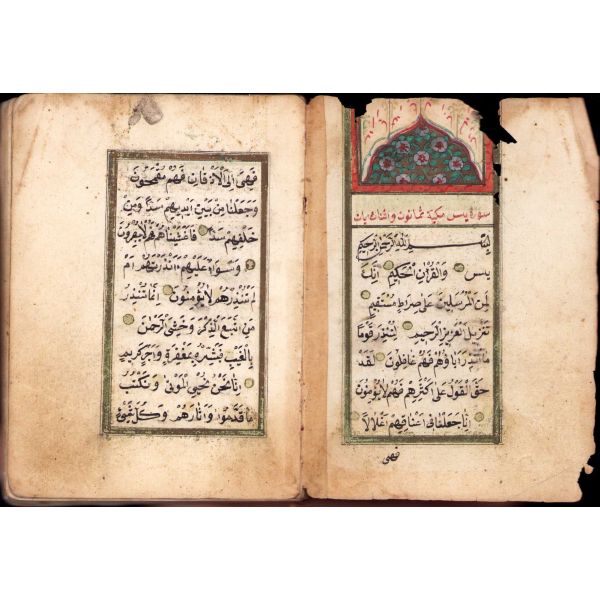 سورة يس مكية ثمانون واثنتا ايات
بسم الله الرحمن الرحيم
يس وَالْقُرْاٰنِ الْحَكِيمِ اِنَّكَ
لَمِنَ الْمُرْسَلِينَ عَلٰى صِرَاطٍ مُسْتَقِيمٍ
تَنْزِيلَ الْعَزِيزِ الرَّحِيمِ لِتُنْذِرَ قَوْمًا
مَا اُنْذِرَ اٰبَاؤُهُمْ فَهُمْ غَافِلُونَ لَقَدْ
حَقَّ الْقَوْلُ عَلٰى اَكْثَرِهِمْ فَهُمْ لَا يُؤْمِنُونَ
اِنَّا جَعَلْنَا فِى اَعْنَاقِهِمْ اَغْلَالًا
فهى
فَهِىَ اِلَى الْاَذْقَانِ فَهُمْ مُقْمَحُونَ
وَجَعَلْنَا مِنْ بَيْنِ اَيْدِيهِمْ سَدًّا وَمِنْ
خَلْفِهِمْ سَدًّا فَاَغْشَيْنَاهُمْ فَهُمْ لَا يُبْصِرُونَ
وَسَوَاءٌ عَلَيْهِمْ ءَاَنْذَرْتَهُمْ اَمْ
لَمْ تُنْذِرْهُمْ لَا يُؤْمِنُونَ اِنَّمَا تُنْذِرُ
مَنِ اتَّبَعَ الذِّكْرَ وَخَشِىَ الرَّحْمٰنَ
بِالْغَيْبِ فَبَشِّرْهُ بِمَغْفِرَةٍ وَاَجْرٍ كَرِيمٍ
اِنَّا نَحْنُ نُحْيِى الْمَوْتٰى وَنَكْتُبُ
مَا قَدَّمُوا وَاٰثَارَهُمْ وَكُلَّ شَىْءٍ